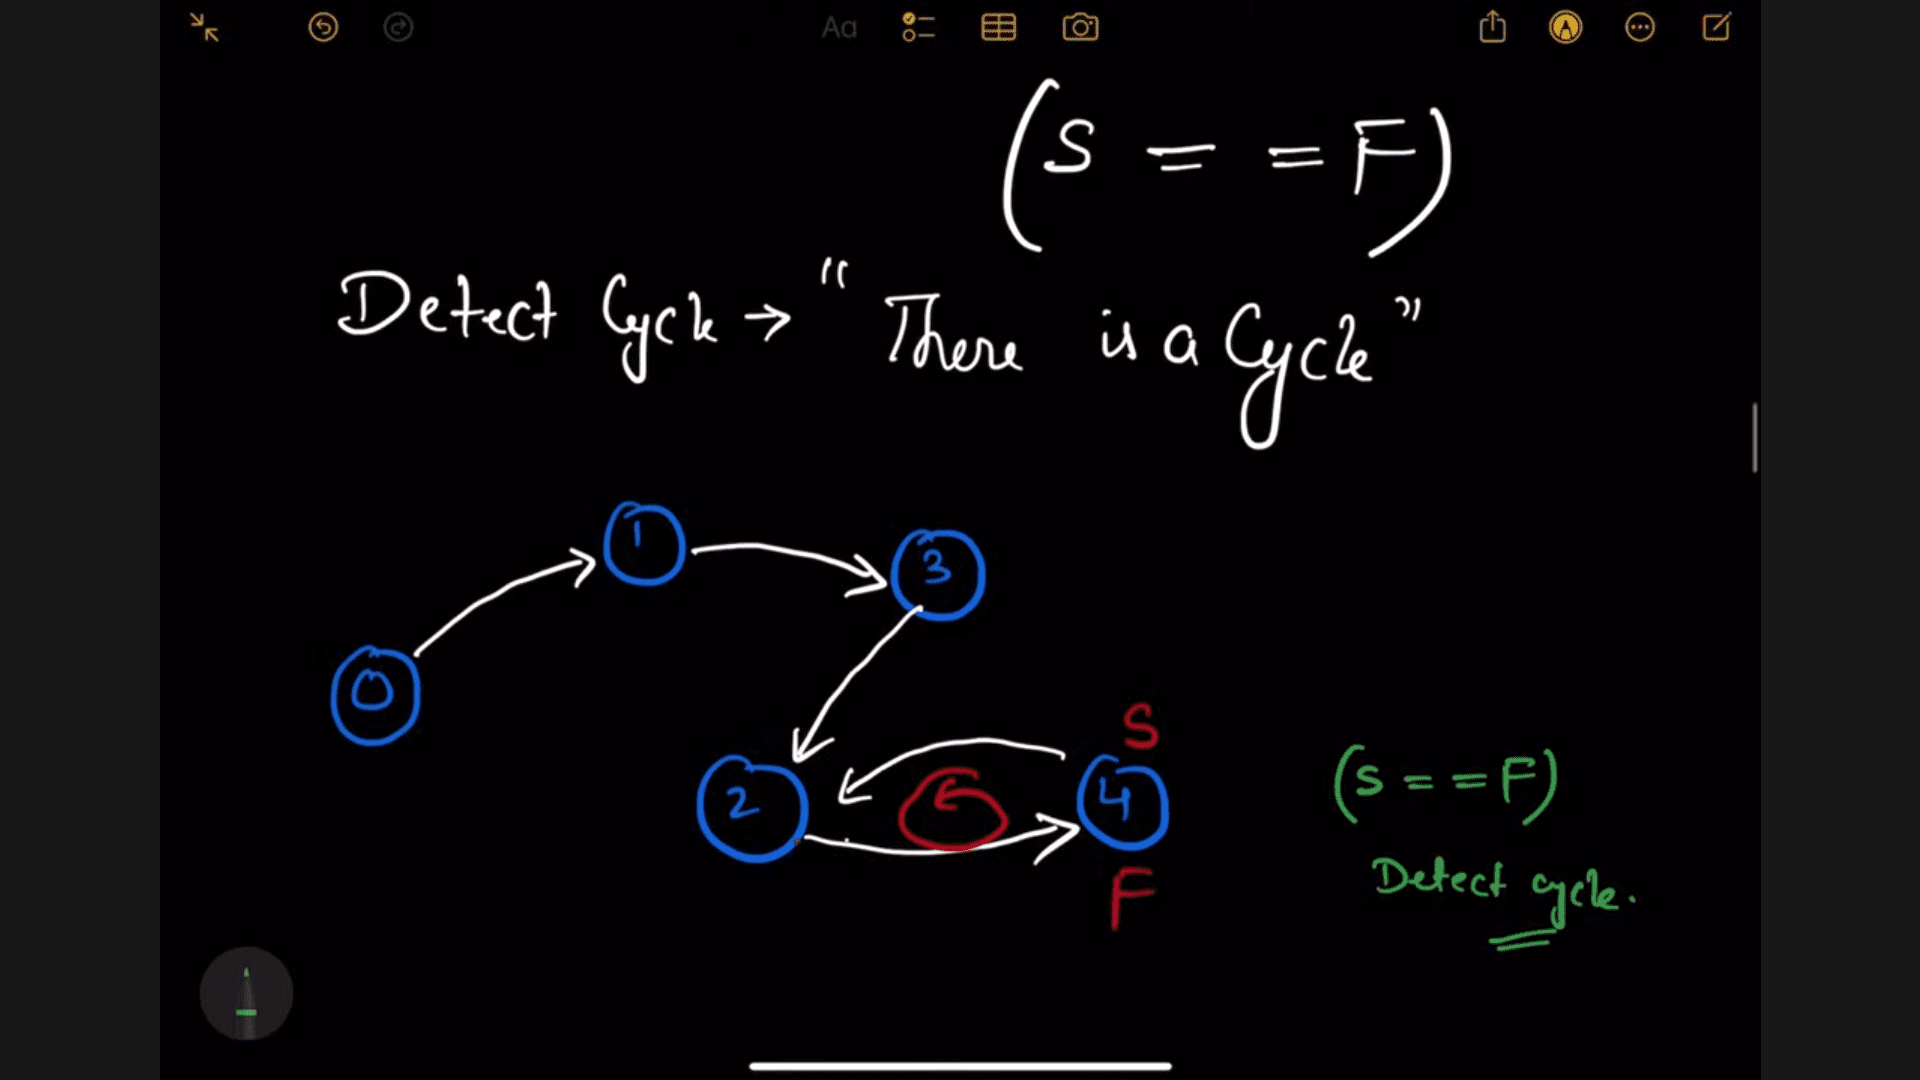 Aa
(S = = F)
Detect Cycle → "There is a Cycle"
1
3
0
S
2
4
(S = = F)
F
Detect cycle.